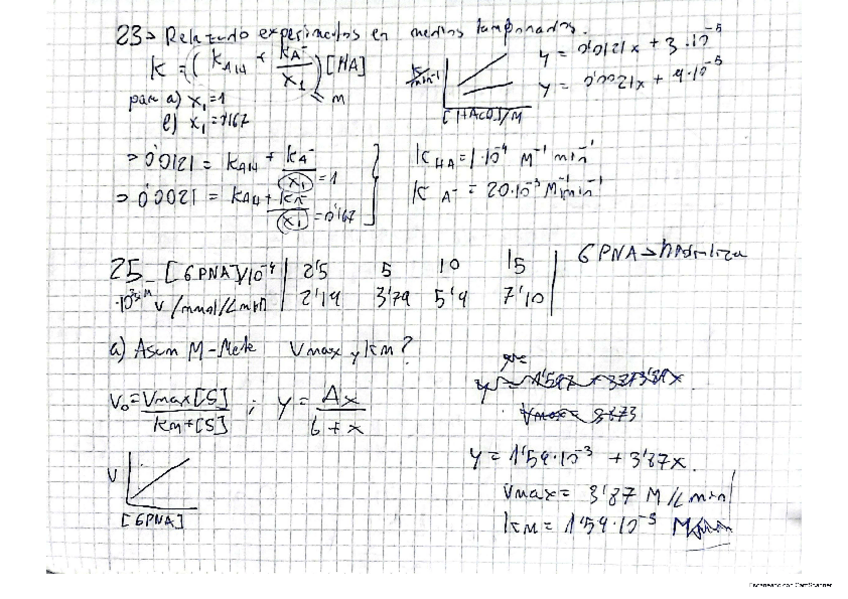 23> Relatudo experimetos en medios tamponados.
K = (kAH + kA⁻/x₁)[HA]
para a) x₁=1
e) x₁=0'167
k/min⁻¹
[HAcO]/M
y = 0'0121x + 3·10⁻⁵
y = 0'0021x + 4·10⁻⁵
=> 0'0121 = kAH + kA⁻/x₁ =1
=> 0'0021 = kAH + kA⁻/x₁ =0'167
kHA = 1·10⁻⁴ M⁻¹ min⁻¹
kA⁻ = 20·10⁻³ M⁻¹min⁻¹
25- [GPNA]/10⁻⁴ M | 2'5 5 10 15
·10³ v /mmol/L min | 2'14 3'79 5'4 7'10
GPNA->hidroliza
a) Asum M-Mete Vmax y kM?
V₀ = Vmax[S]/kM+[S] ; y = Ax/b+x
V
[GPNA]
y = 1'54·10⁻³ + 3'87x.
Vmax = 3'87 M/L min
kM = 1'54·10⁻³
Escaneado con CamScanner